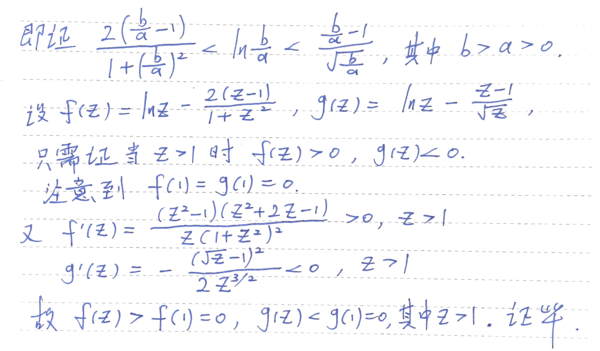 即证 \frac{2(\frac{b}{a}-1)}{1+(\frac{b}{a})^2} < \ln\frac{b}{a} < \frac{\frac{b}{a}-1}{\sqrt{\frac{b}{a}}}, 其中 b>a>0.
设 f(z)=\ln z-\frac{2(z-1)}{1+z^2}, g(z)=\ln z-\frac{z-1}{\sqrt{z}},
只需证当 z>1 时 f(z)>0, g(z)<0.
注意到 f(1)=g(1)=0.
又 f'(z)=\frac{(z^2-1)(z^2+2z-1)}{z(1+z^2)^2}>0, z>1
g'(z)=-\frac{(\sqrt{z}-1)^2}{2z^{3/2}}<0, z>1
故 f(z)>f(1)=0, g(z)<g(1)=0, 其中z>1. 证毕.